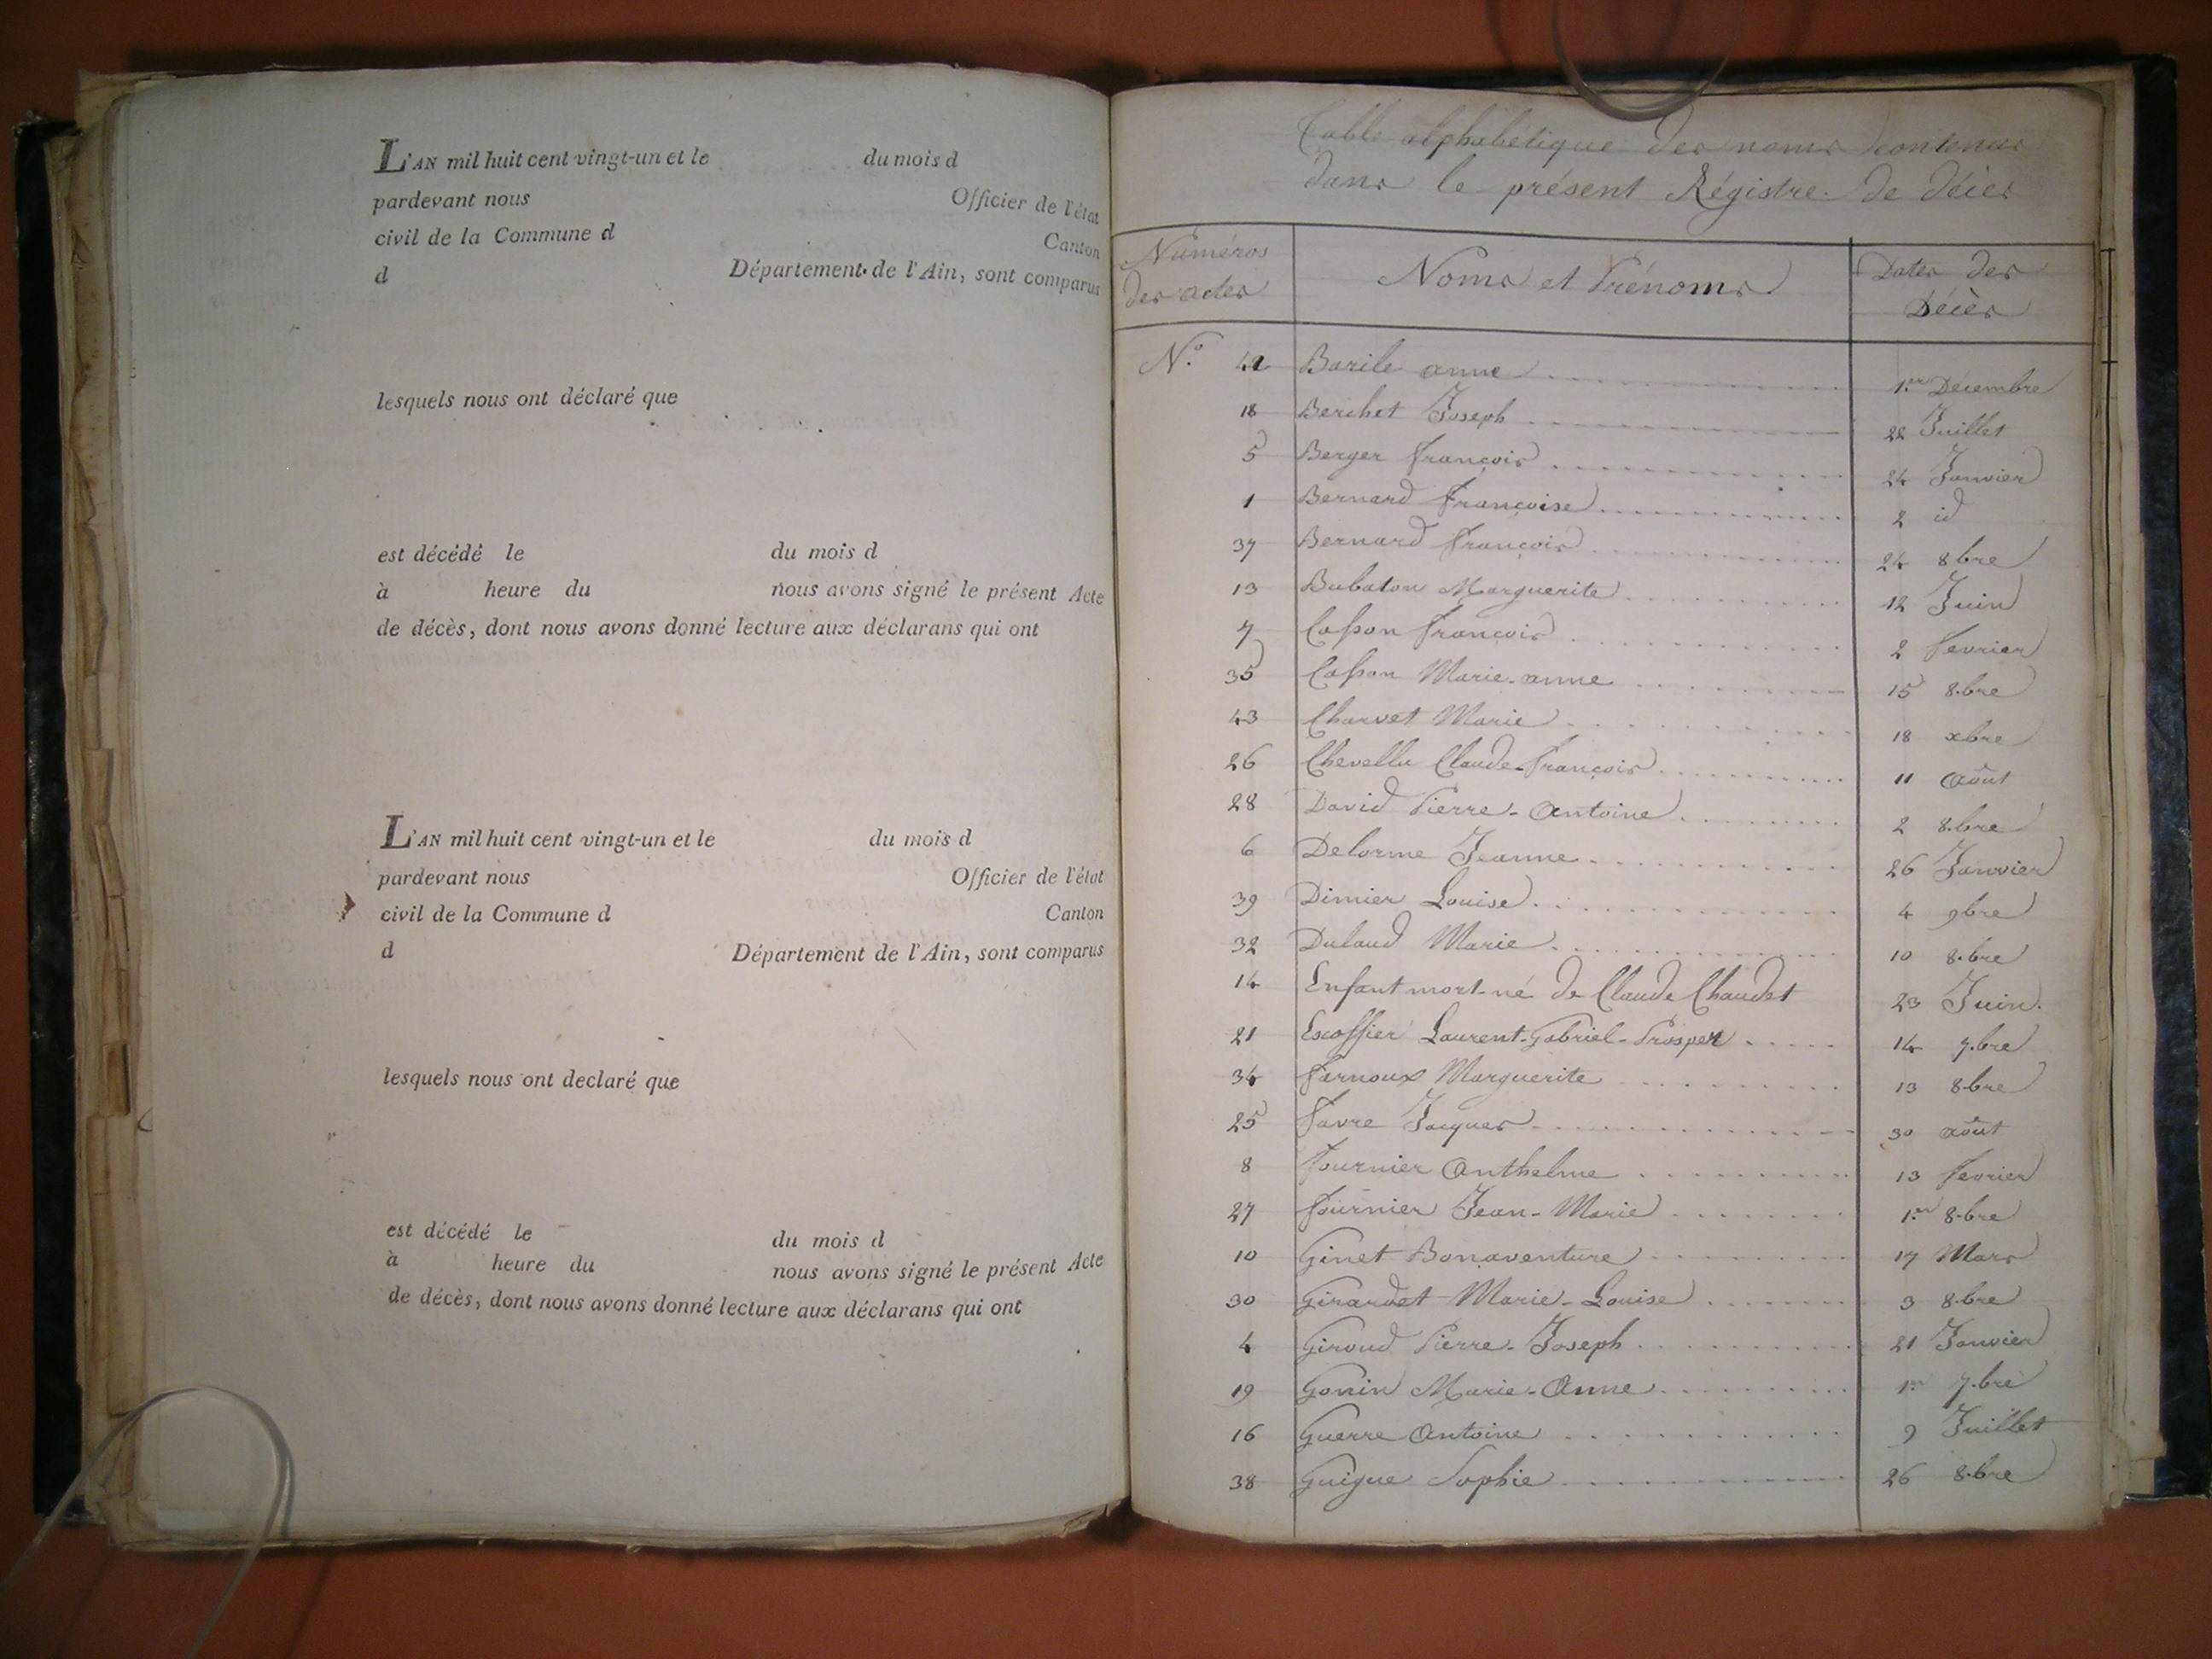 L'AN mil huit cent vingt-un et le du mois d
pardevant nous Officier de l'état
civil de la Commune d Canton
d Département de l'Ain, sont comparus
lesquels nous ont déclaré que
est décédé le du mois d
à heure du nous avons signé le présent Acte
de décès, dont nous avons donné lecture aux déclarans qui ont
L'AN mil huit cent vingt-un et le du mois d
pardevant nous Officier de l'état
civil de la Commune d Canton
d Département de l'Ain, sont comparus
lesquels nous ont declaré que
est décédé le du mois d
à heure du nous avons signé le présent Acte
de décès, dont nous avons donné lecture aux déclarans qui ont
Table alphabetique des noms contenus
dans le présent Régistre de décès
Numéros des actes Noms et Prénoms Dates des Décès
N.º Barile anne 1.er Décembre
18 Berchet Joseph 22 Juillet
5 Berger françois 24 Janvier
1 Bernard françoise 2 id
37 Bernard françois 24 8bre
13 Bubaton Marguerite 12 Juin
7 Casson françois 2 fevrier
35 Casson Marie-anne 15 8.bre
43 Charvet Marie 18 xbre
26 Chevellu Claude-françois 11 août
28 David Pierre-Antoine 2 8.bre
6 Delorme Jeanne 26 Janvier
39 Dimier Louise 4 9bre
32 Dulaud Marie 10 8.bre
14 Enfant mort-né de Claude Chaudet 23 Juin.
21 Escoffier Laurent-Gabriel-Prosper 14 7.bre
34 farnoux Marguerite 13 8bre
25 favre Jacques 30 août
8 fournier Anthelme 13 fevrier
27 fournier Jean-Marie 1.er 8.bre
10 Ginet Bonaventure 17 Mars
30 Girardet Marie-Louise 3 8.bre
4 Giroud Pierre-Joseph 21 Janvier
19 Gonin Marie-Anne 1.er 7.bre
16 Guerre Antoine 9 Juillet
38 Guigue Sophie 26 8.bre